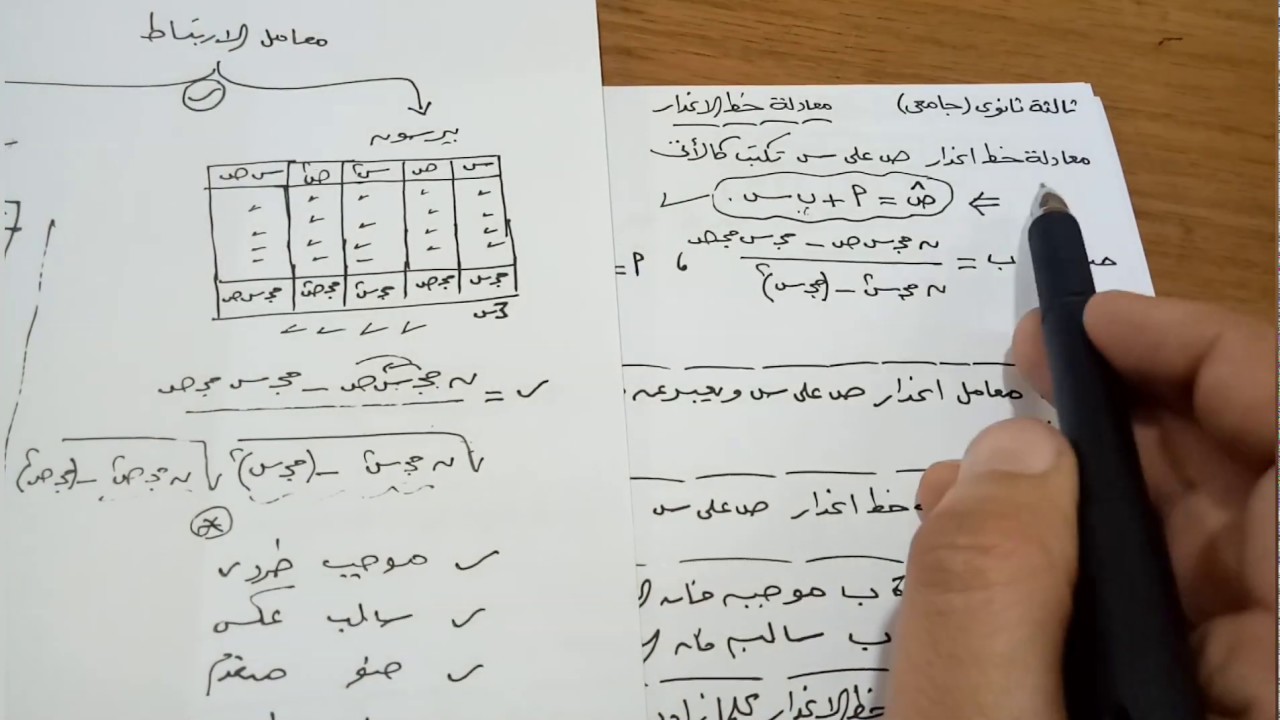 معامل الارتباط
بيرسون
س ص س² ص² س ص
مجـ س مجـ ص مجـ س² مجـ ص² مجـ س ص
= ن مجـ س ص − مجـ س مجـ ص
√ن مجـ س² − (مجـ س)² √ن مجـ ص² − (مجـ ص)²
موجب طردى
سالب عكس
صفر منعدم
ثالثة ثانوى (جامعى) معادلة خط الانحدار
معادلة خط انحدار ص على س تكتب كالأتى
⇐ ص̂ = أ + ب س
ب = ن مجـ س ص − مجـ س مجـ ص ، أ =
ن مجـ س² − (مجـ س)²
معامل انحدار ص على س ويعبر عنه
خط انحدار ص على س
ب موجبه فإنه
ب سالبه فإنه
خط الانحدار كلما زاد